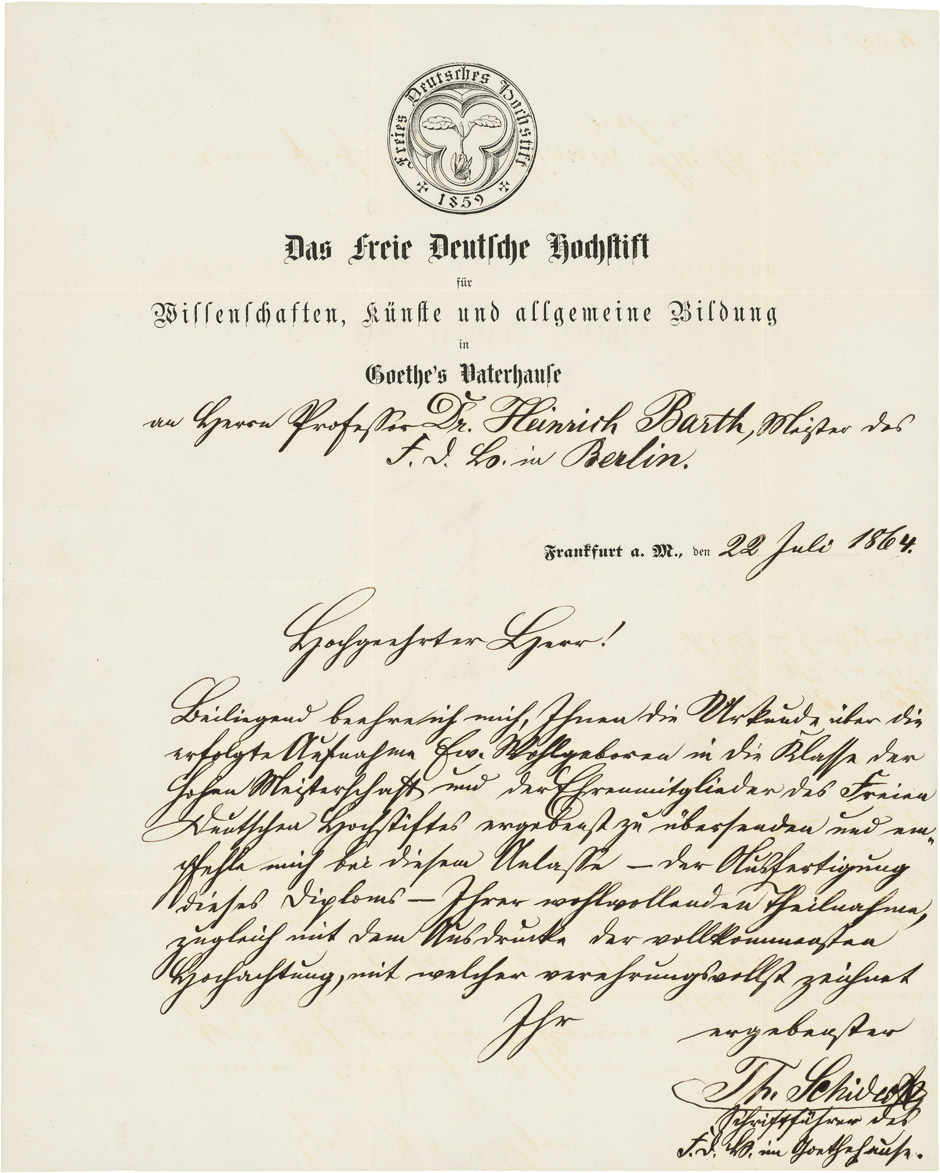 Freies Deutsches Hochstift
1859
Das Freie Deutsche Hochstift
für
Wissenschaften, Künste und allgemeine Bildung
in
Goethe's Vaterhause
an Herrn Professor Dr. Heinrich Barth, Meister des
F. d. H. in Berlin.
Frankfurt a. M., den 22 Juli 1864.
Hochgeehrter Herr!
Beiliegend beehre ich mich, Ihnen die Urkunde über die
erfolgte Aufnahme Ew. Wohlgeboren in die Klasse der
hohen Meisterschaft und der Ehrenmitglieder des Freien
Deutschen Hochstiftes ergebenst zu übersenden und em-
pfehle mich bei diesem Anlasse – der Ausfertigung
dieses Diploms – Ihrer wohlwollenden Theilnahme,
zugleich mit dem Ausdrucke der vollkommensten
Hochachtung, mit welcher verehrungsvollst zeichnet
Ihr ergebenster
Th.
Schriftführer des
F. d. H. im Goethehause.